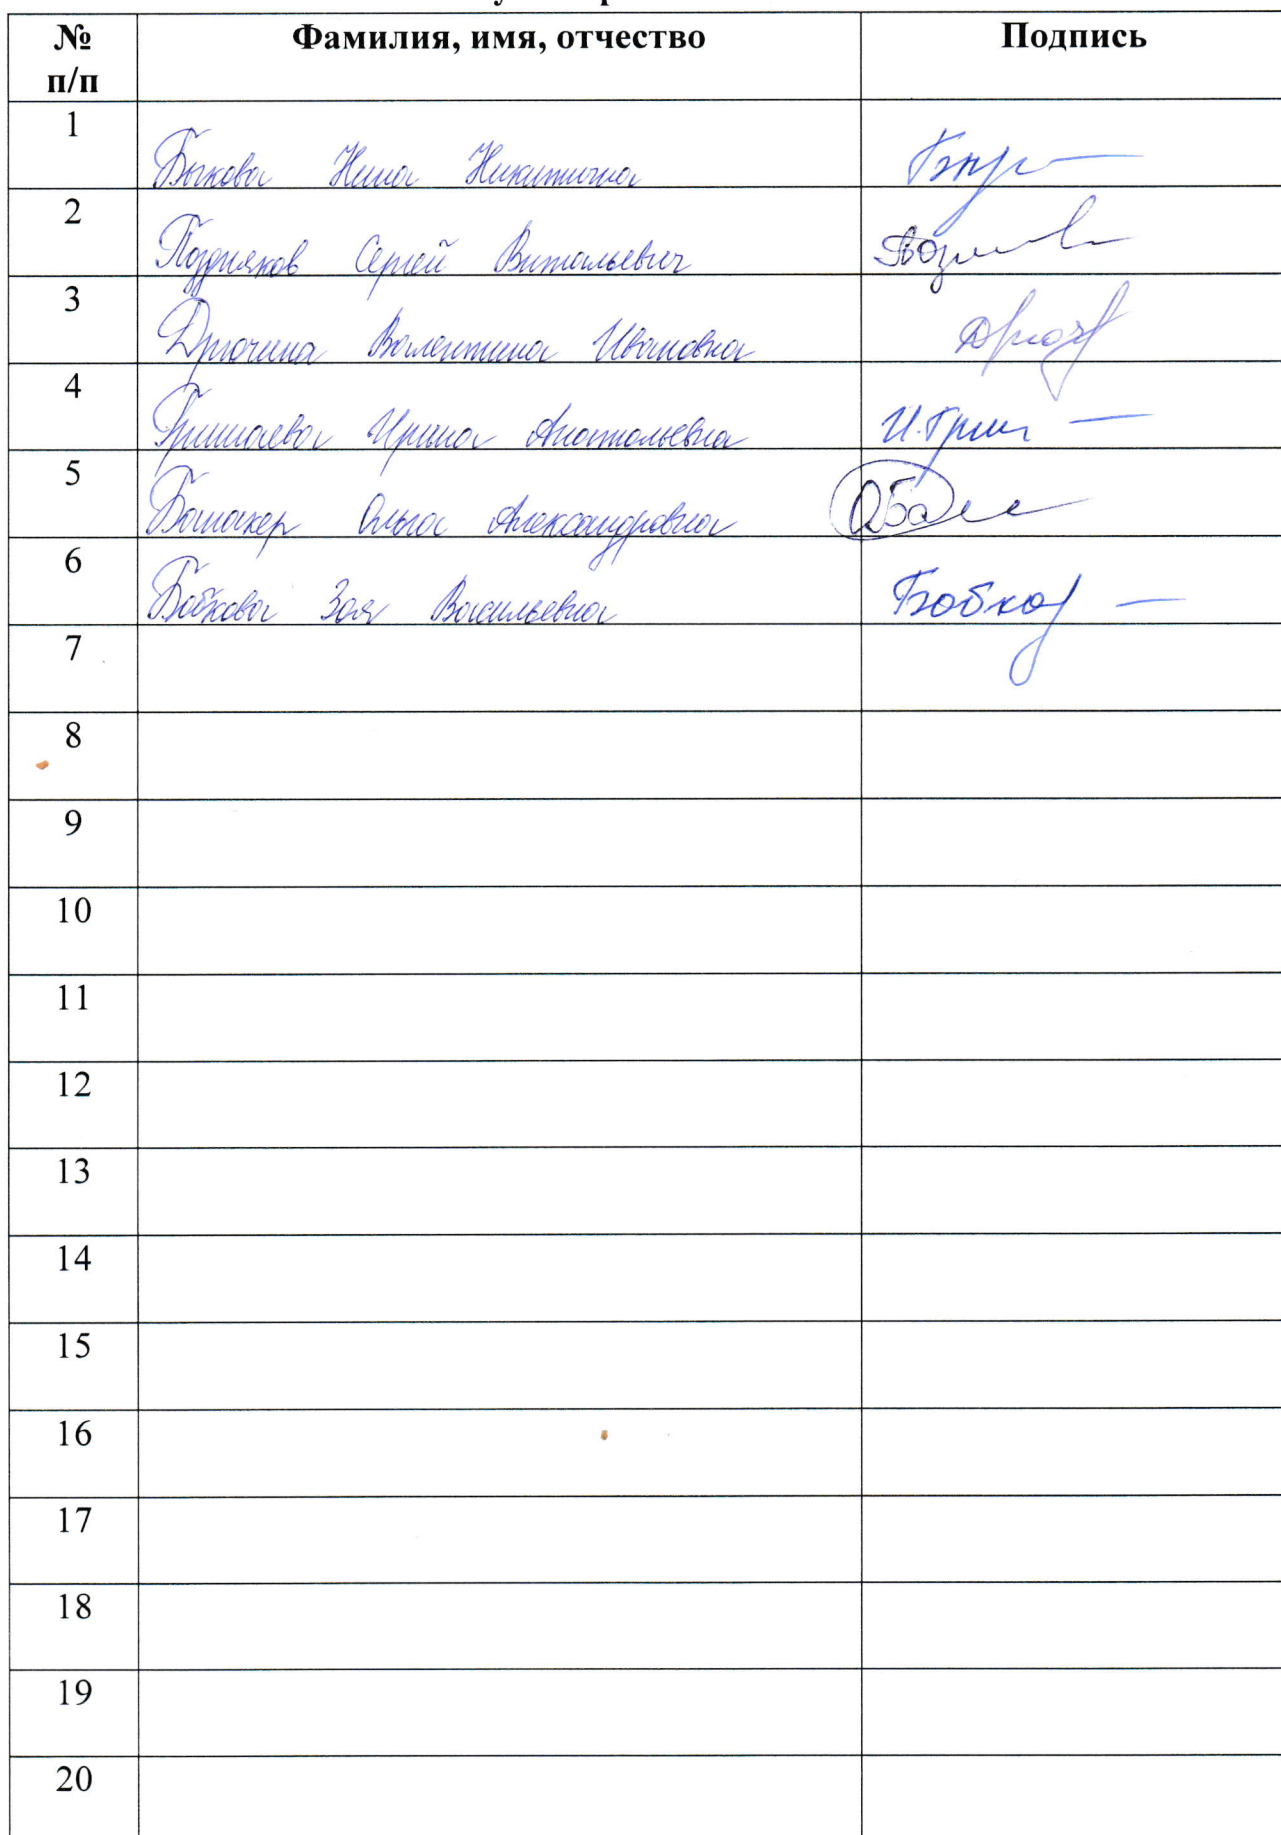 № п/п Фамилия, имя, отчество Подпись
1 Быкова Нина Никитична
2 Поздняков Сергей Витальевич
3 Дрючина Валентина Ивановна
4 Гришаева Ирина Анатольевна И.Гриш
5 Ольга Александровна
6 Бобкова Зоя Васильевна Бобков
7
8
9
10
11
12
13
14
15
16
17
18
19
20